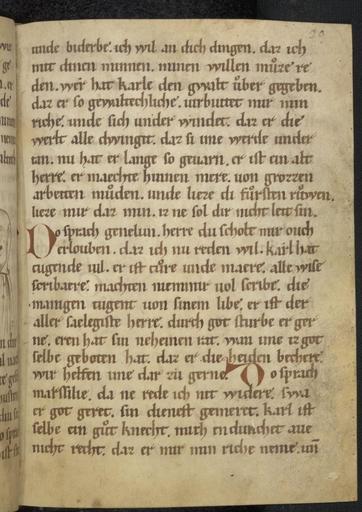 unde biderbe. ich wil an dich dingen. daz ich
mit dinen minnen. minen willen můze re
den. wer hat karle den gwalt uͤber gegeben.
daz er so gewaltechliche. uirbuttet mir min
riche. unde sich under windet. daz er die
werlt alle dwingit. daz si ime werde under
tan. nu hat er lange so geuarn. er ist ein alt
herre. er maechte hinnen mere. uon grozzen
arbeiten můden. unde lieze di fůrsten růwen.
lieze mir daz min. iz ne sol dir nicht leit sin.
Do sprach genelun. herre du scholt mir ouch
erlouben. daz ich nu reden wil. karl hat
tugende uil. er ist tůre unde maere. alle wise
scribaere. machten niemmir uol scribe. die
manigen tugent uon sinem libe. er ist der
aller saelegiste herre. durch got sturbe er ger
ne. eren hat sin neheinen rat. wan ime iz got
selbe geboten hat. daz er die heiden bechere.
wir helfen ime dar zů gerne. Do sprach
marssilie. da ne rede ich nit widere. swa
er got geret. sin dienest gemeret. karl ist
selbe ein gůt knecht. mich en dunchet aue
nicht recht. daz er mir min riche neme. uñ